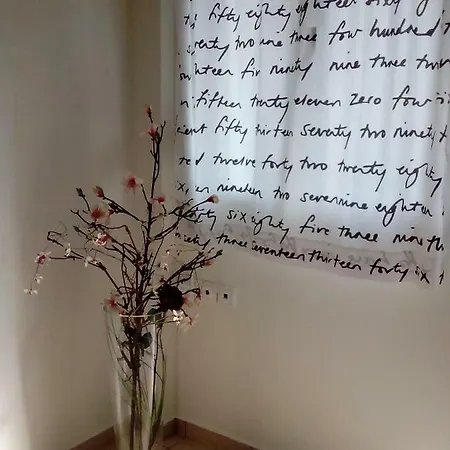 fifty eighty eighteen sixty
seventy two nine three four hundred
eighteen fiv ninety nine three
fifteen twenty eleven zero four
fifty thirteen seventy two ninety
twelve forty two twenty eighty
nineteen two seven nine eighteen
sixty six eighty five three nine
three seventeen thirteen forty six